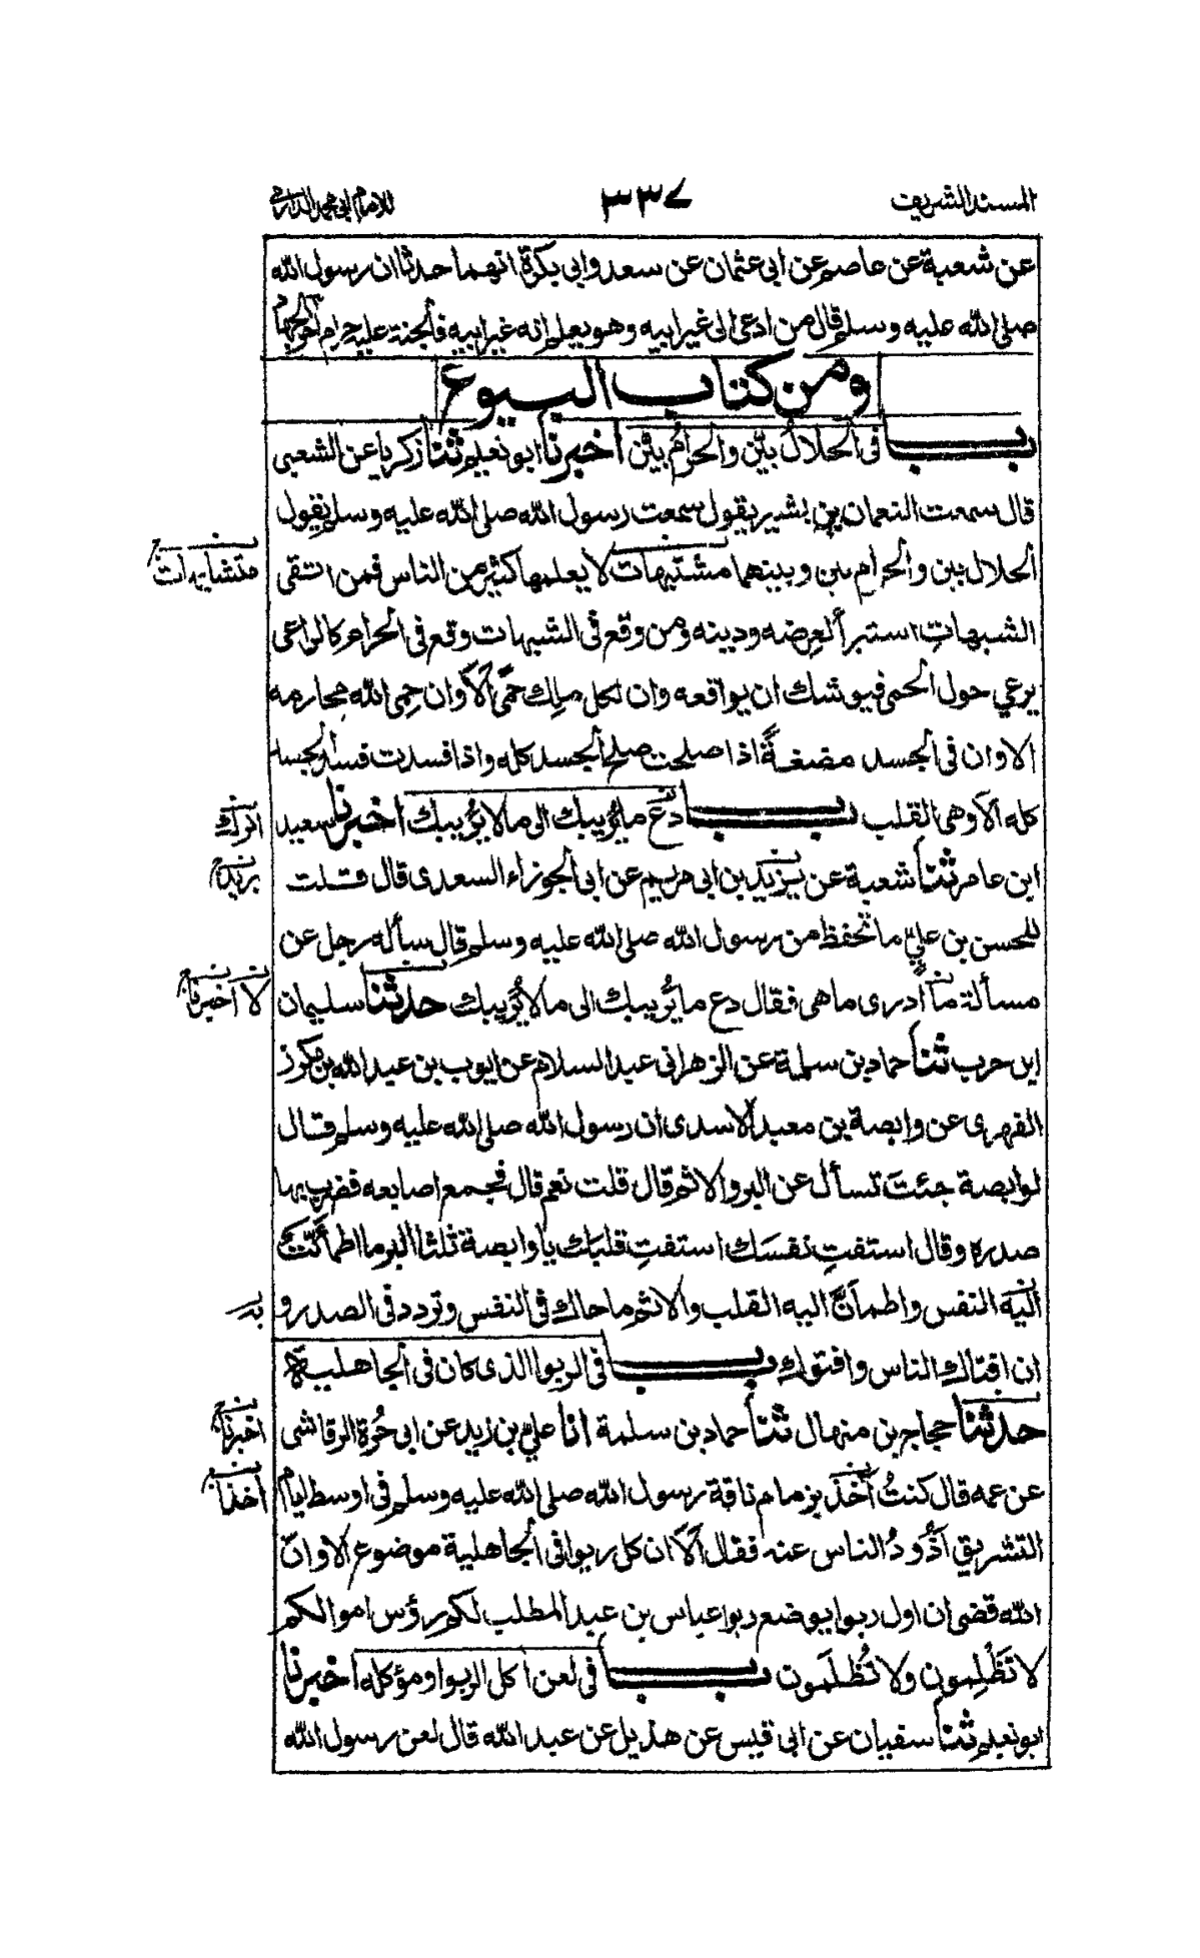 المسند الشريف ٣٣٧ للامام ابی محمد الدارمی
عن شعبة عن عاصم عن ابی عثمان عن سعد وابی بكرة انهما حدثا ان رسول الله
صلی الله عليه وسلم قال من ادعی الی غير ابيه وهو يعلم انه غير ابيه فالجنة عليه حرام
ومن كتاب البيوع
باب فی الحلالُ بيّن والحرامُ بيّن اخبرنا ابو نعيم ثنا زكريا عن الشعبی
قال سمعت النعمان بن بشير يقول سمعت رسول الله صلی الله عليه وسلم يقول
الحلال بين والحرام بين وبينهما مشتبهات لا يعلمها كثير من الناس فمن اتقی
متشابهات
الشبهاتِ استبرأ لعِرضه ودينه ومن وقع فی الشبهات وقع فی الحرام كالراعی
يرعي حول الحمی فيوشك ان يواقعه وان لكل ملِك حمًی ألَا وان حِمی الله محارمه
الا وان فی الجسد مضغةً اذا صلحت صلح الجسد كله واذا فسدت فسد الجسد
كله ألا وهی القلب باب دَع ما يُريبك الی ما لا يُريبك اخبرنا سعيد
اترك
ابن عامر ثنا شعبة عن يزيد بن ابی مريم عن ابی الجوزاء السعدی قال قلت
بريد
للحسن بن عليّ ما تحفظ من رسول الله صلی الله عليه وسلم قال سأله رجل عن
مسألة ما أدری ما هی فقال دع ما يُريبك الی ما لا يُريبك حدثنا سليمان
لا اخبرنا
ابن حرب ثنا حماد بن سلمة عن الزهرانی عبد السلام عن ايوب بن عبد الله بن مكرز
الفهری عن وابصة بن معبد الاسدی ان رسول الله صلی الله عليه وسلم قال
لوابصة جئتَ تسأل عن البر والاثم قال قلت نعم قال فجمع اصابعه فضرب بها
صدره وقال استفتِ نفسَك استفتِ قلبك يا وابصة ثلثا البر ما اطمأنّت
اليه النفس واطمأنّ اليه القلب والاثم ما حاك فی النفس وتردد فی الصدر و
به
ان افتاك الناس وافتوك باب فی الربوا الذی كان فی الجاهلية
حدثنا حجاج بن منهال ثنا حماد بن سلمة انا علیّ بن زيد عن ابی حُرّة الرقاشی
اخبرنا
عن عمه قال كنتُ آخذ بزمام ناقة رسول الله صلی الله عليه وسلم فی اوسط ايام
اخذا
التشريق أذُودُ الناس عنه فقال ألَا ان كل ربوا فی الجاهلية موضوع الا وانّ
الله قضی ان اول ربوا يوضع ربوا عباس بن عبد المطلب لكم رؤس اموالكم
لا تَظْلِمون ولا تُظلَمون باب فی لعن آكل الربوا ومؤكله اخبرنا
ابو نعيم ثنا سفيان عن ابی قيس عن هذيل عن عبد الله قال لعن رسول الله